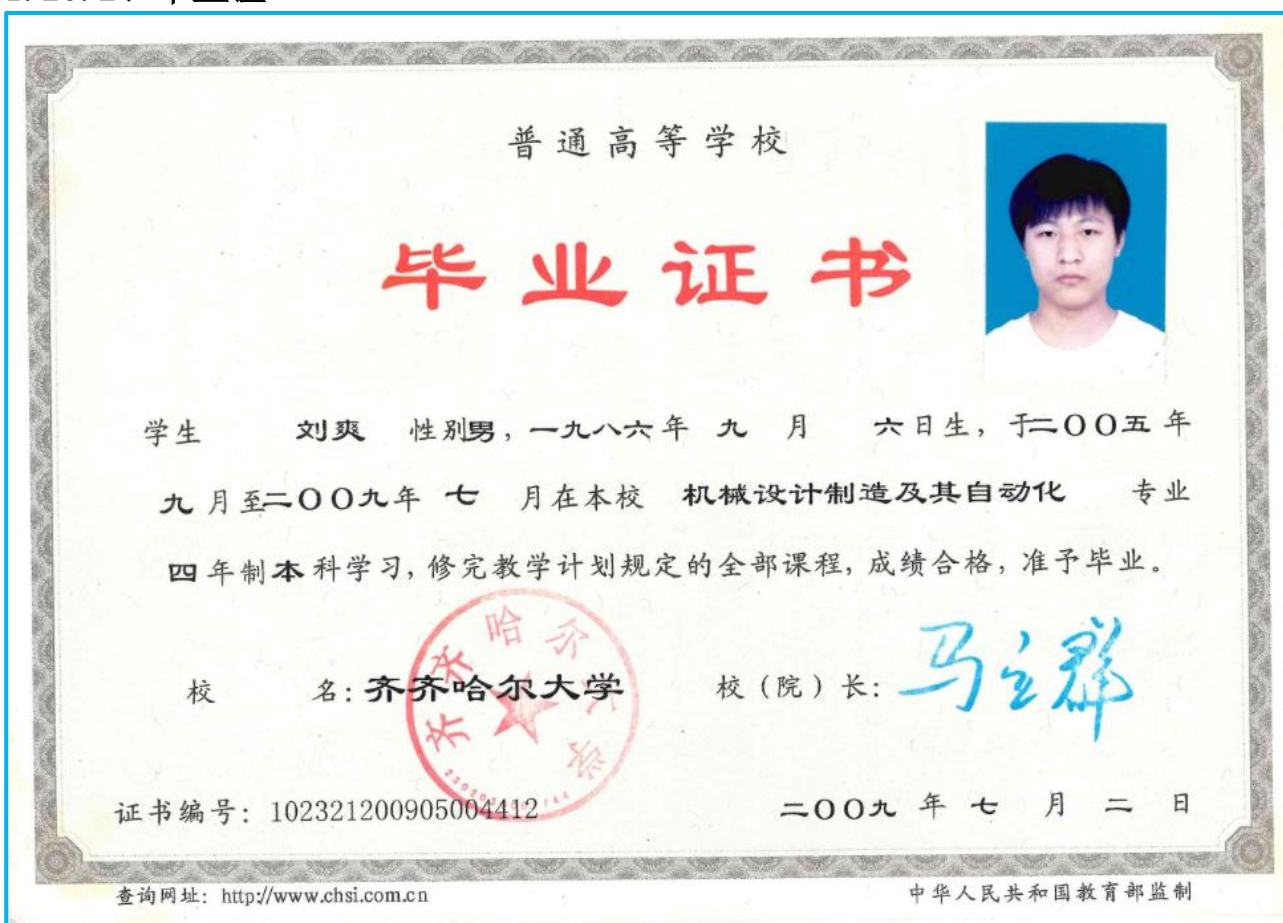 普通高等学校
毕业证书
学生 刘爽 性别男，一九八六年 九 月 六日生，于二〇〇五年
九月至二〇〇九年 七 月在本校 机械设计制造及其自动化 专业
四年制本科学习，修完教学计划规定的全部课程，成绩合格，准予毕业。
校 名：齐齐哈尔大学 校（院）长：马立群
齐齐哈尔大学
证书编号：102321200905004412 二〇〇九 年 七 月 二 日
查询网址：http://www.chsi.com.cn 中华人民共和国教育部监制